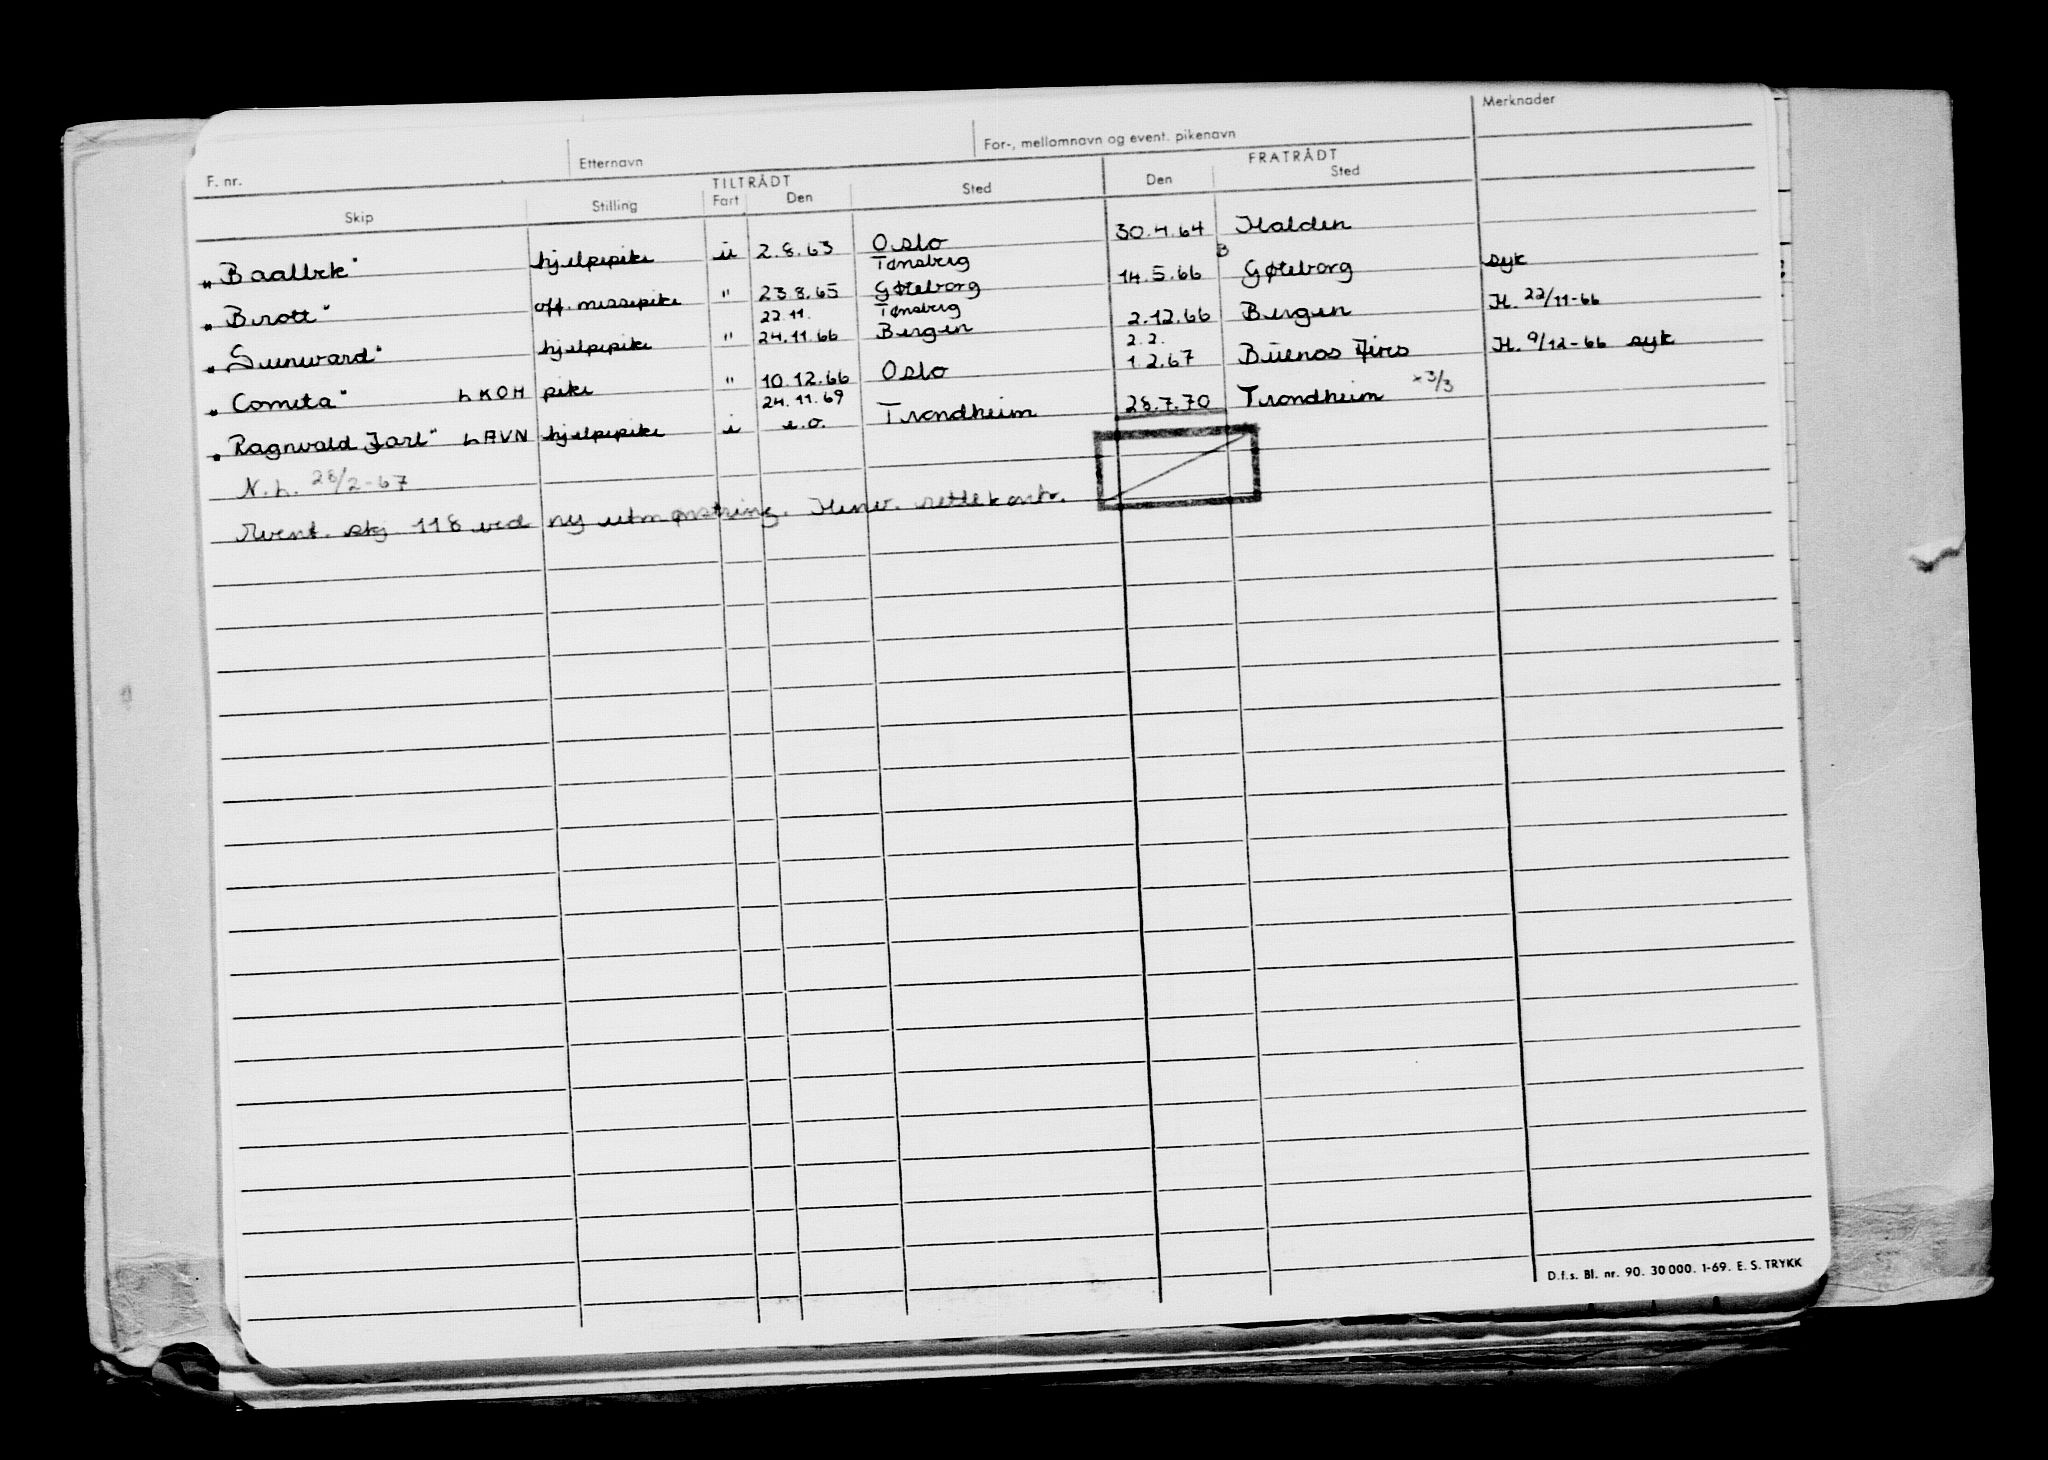 F. nr. Etternavn For-, mellomnavn og event. pikenavn Merknader
TILTRÅDT FRATRÅDT
Skip Stilling Fart Den Sted Den Sted
"Baalbek" hjelpepike u 2.8.63 Oslo 30.4.64 Halden
Tønsberg B
"Brott" off. messepike " 23.8.65 Gøteborg 14.5.66 Gøteborg syk
22.11. Tønsberg
"Sunward" hjelpepike " 24.11.66 Bergen 2.12.66 Bergen H. 22/11-66
2.2.
"Cometa" LKOH pike " 10.12.66 Oslo 1.2.67 Buenos Aires H. 9/12-66 syk
24.11.69 x 3/3
"Ragnvald Jarl" LAVN hjelpepike i e.o. Trondheim 28.7.70 Trondheim
N.L. 28/2-67
Event. skj 118 ved ny utmønstring. Henv. rettekontr.
D.f.s. Bl. nr. 90. 30 000. 1-69. E. S. TRYKK